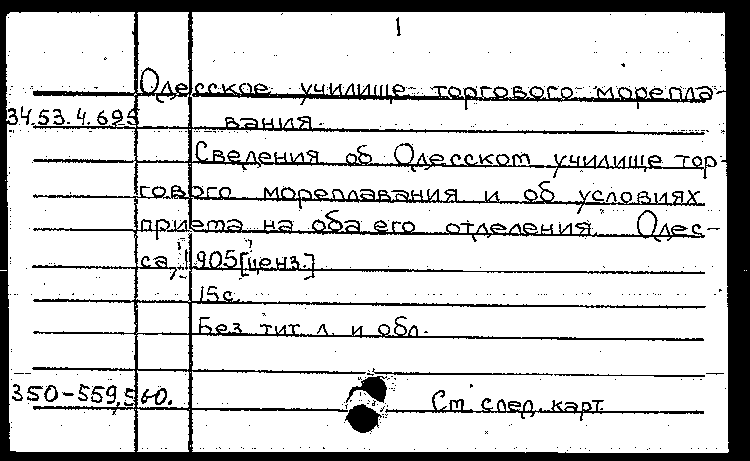 1
Одесское училище торгового морепла-
34.53.4.695 вания.
Сведения об Одесском училище тор-
гового мореплавания и об условиях
приема на оба его отделения. Одес-
са, 1905 [ценз.]
15с.
Без тит. л. и обл.
350-559,560. См. след. карт.